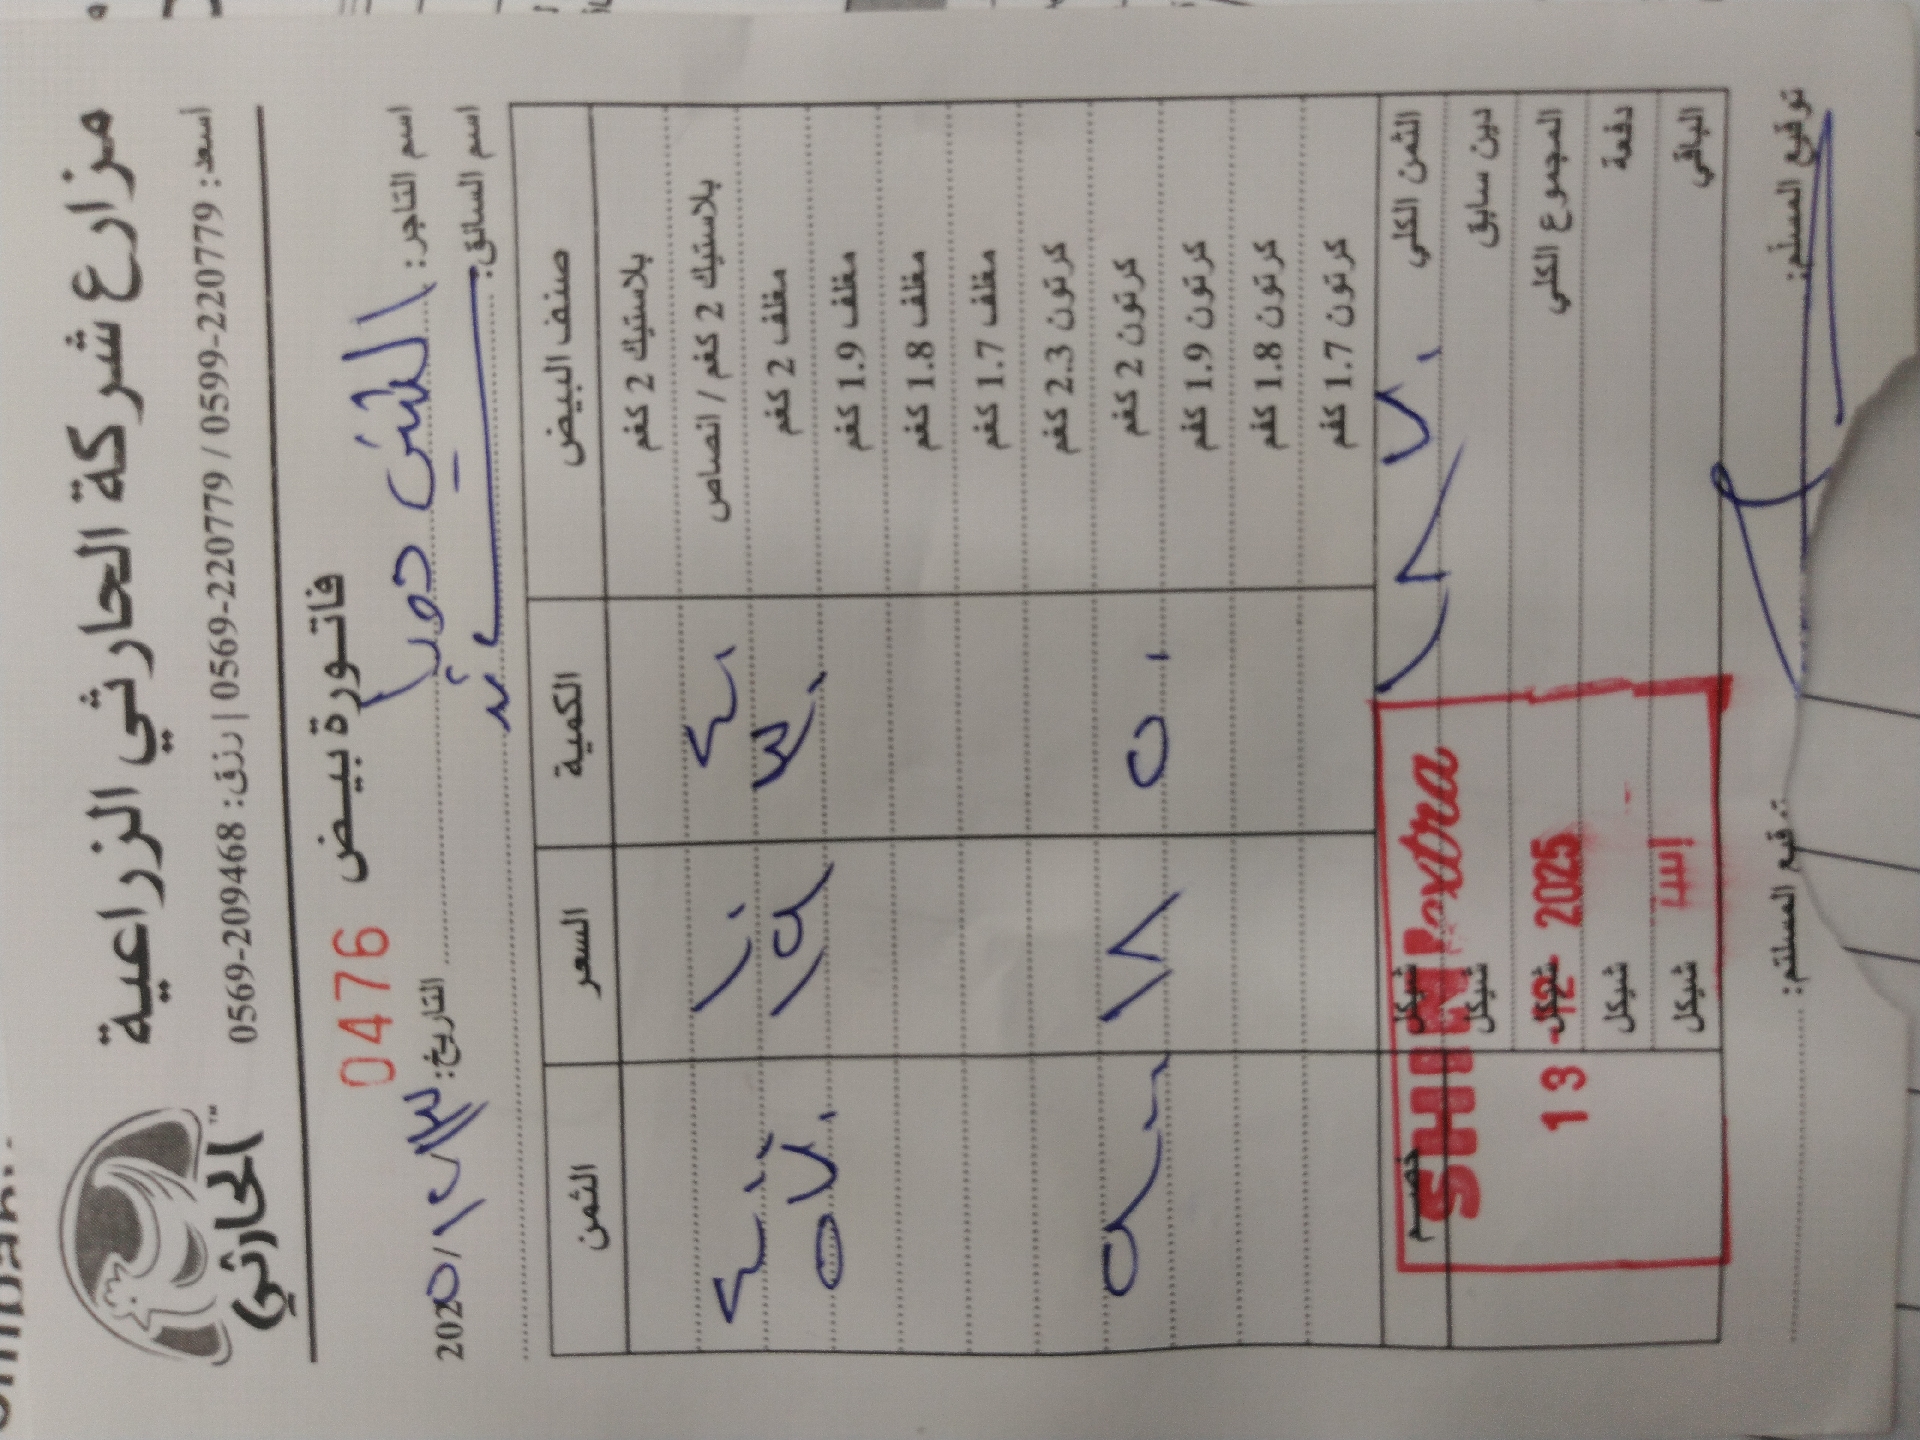 الحارثي
مزارع شركة الحارثي الزراعية
أسعد: 0599-220779 / 0569-220779 | رزق: 0569-209468
فاتورة بيض 0476
اسم التاجر: الشني دورا
التاريخ: ١٣/١٢/2025
اسم السائق:
صنف البيض الكمية السعر الثمن
بلاستيك 2 كغم
بلاستيك 2 كغم / انصاص ٤٠ ١٠ ٤٠٠
مغلف 2 كغم ٣٠ ١٩ ٥٧٠
مغلف 1.9 كغم
مغلف 1.8 كغم
مغلف 1.7 كغم
كرتون 2.3 كغم
كرتون 2 كغم ٥٠ ١٨ ٩٠٠
كرتون 1.9 كغم
كرتون 1.8 كغم
كرتون 1.7 كغم
الثمن الكلي ١٨٧٠ شيكل خصم
دين سابق شيكل
المجموع الكلي شيكل
دفعة شيكل
الباقي شيكل
SHINI extra
13 -12- 2025
توقيع المسلّم:
توقيع المستلم: